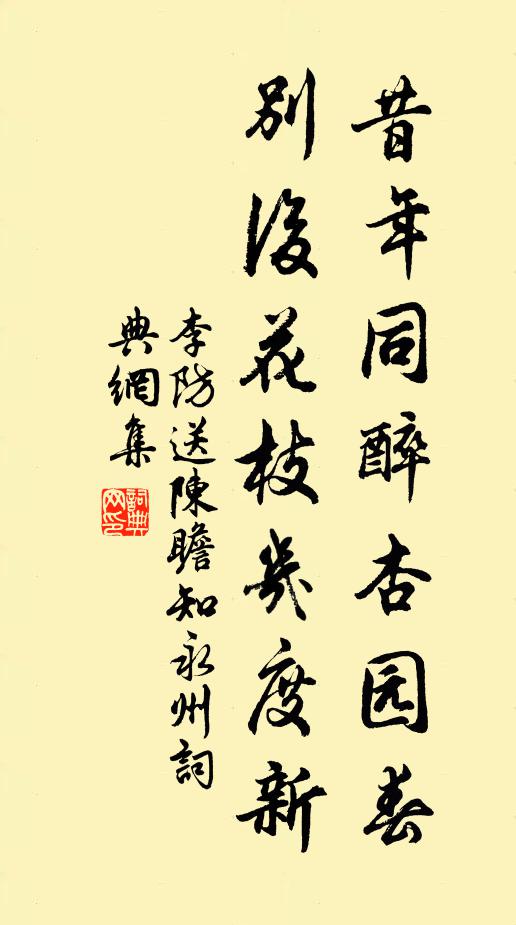 昔年同醉杏园春
别後花枝幾度新
李防送陳瞻知永州詞
典網集
詞典
网印